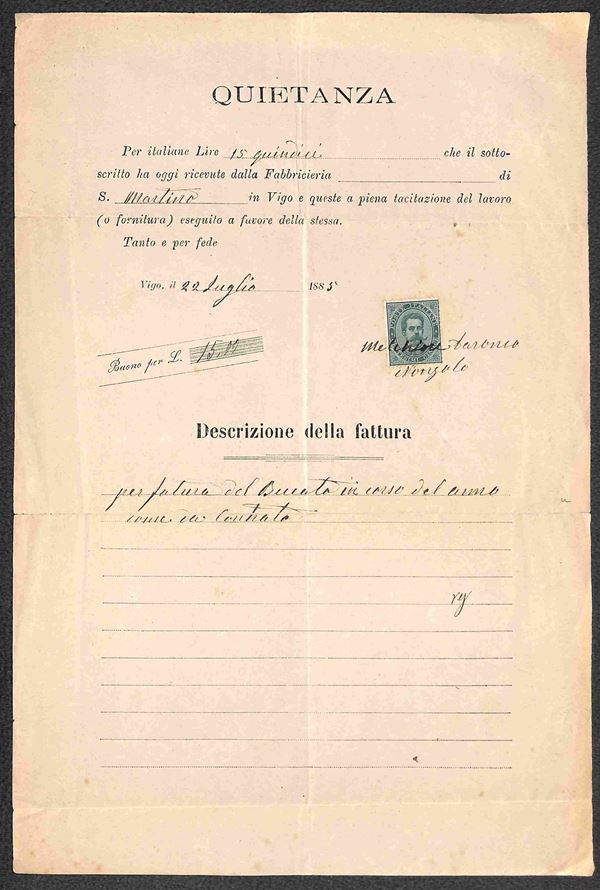 QUIETANZA
Per italiane Lire 15 quindici che il sotto-
scritto ha oggi ricevute dalla Fabbricieria di
S. Martino in Vigo e queste a piena tacitazione del lavoro
(o fornitura) eseguito a favore della stessa.
Tanto e per fede
Vigo, il 22 Luglio 1885
Buono per L. 15.
Descrizione della fattura
per fatura del Bucato in corso del anno
come da Contrato